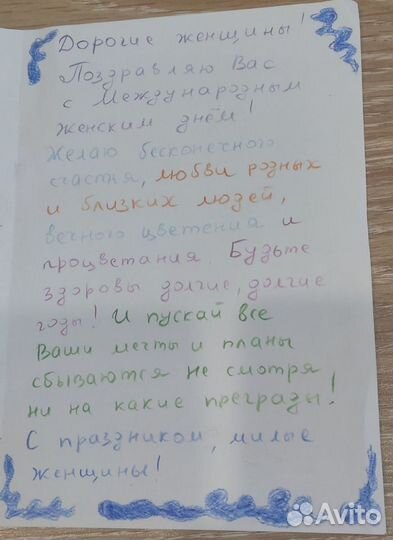 Дорогие женщины!
Поздравляю Вас
с Международным
женским днём!
Желаю бесконечного
счастья, любви родных
и близких людей,
вечного цветения и
процветания. Будьте
здоровы долгие, долгие
годы! И пускай все
Ваши мечты и планы
сбываются не смотря
ни на какие преграды!
С праздником, милые
женщины!
Avito